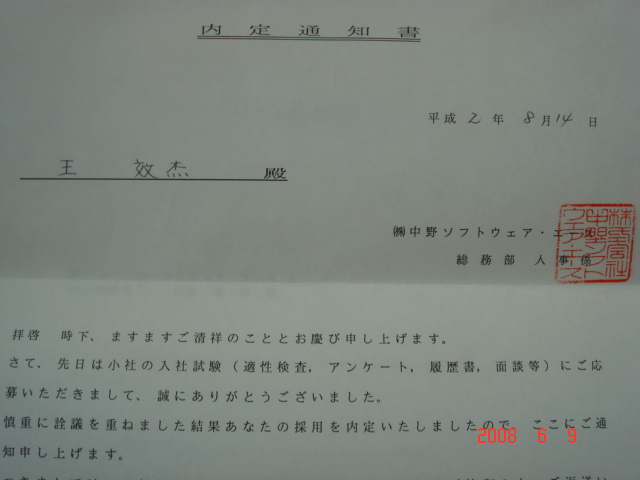 内定通知書
平成 2 年 8 月 14 日
王 效杰 殿
㈱中野ソフトウェア・エ
総務部 人事係
拝啓 時下、ますますご清祥のこととお慶び申し上げます。
さて、先日は小社の入社試験（適性検査，アンケート，履歴書，面談等）にご応
募いただきまして、誠にありがとうございました。
慎重に詮議を重ねました結果あなたの採用を内定いたしましたので、ここにご通
知申し上げます。
2008 6 9